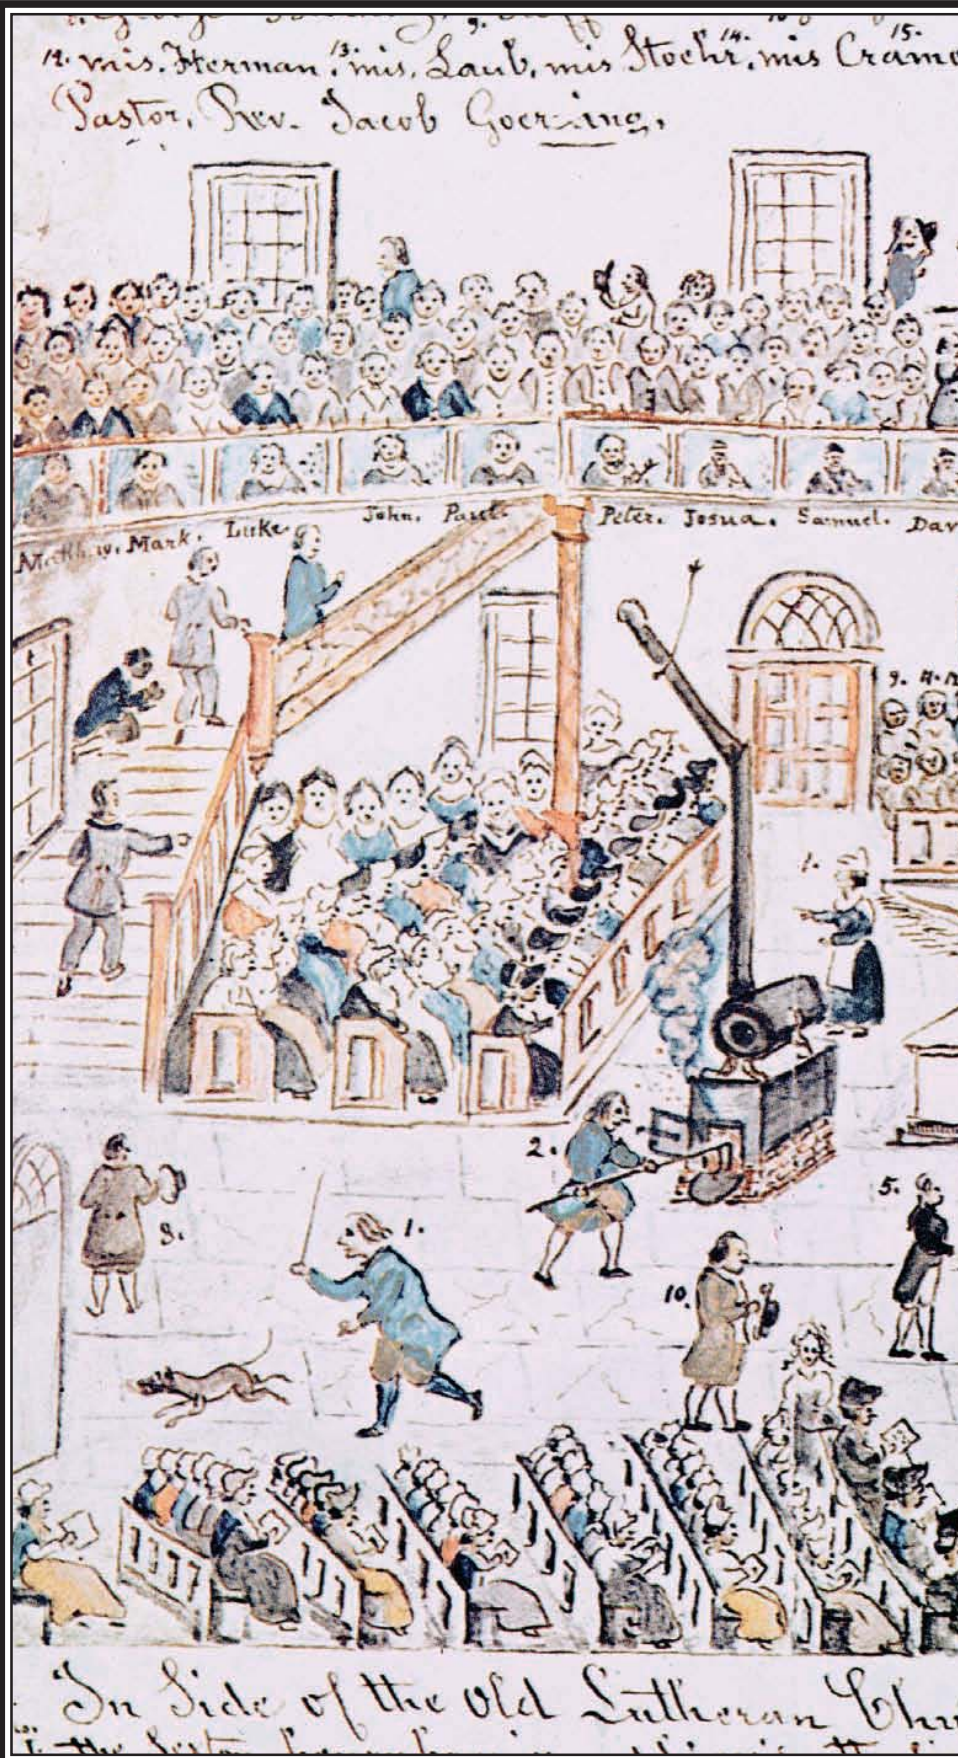 9. 10
12. mis. Herman. 13. mis. Laub. mis Stoehr. 14. mis Crame 15.
Pastor, Rev. Jacob Goerring.
Mark. Luke. John. Paul. Peter. Josua. Samuel. Dav
9. 11.
1.
2.
5.
8.
1.
10.
In Side of the Old Lutheran Chu
the Sexton